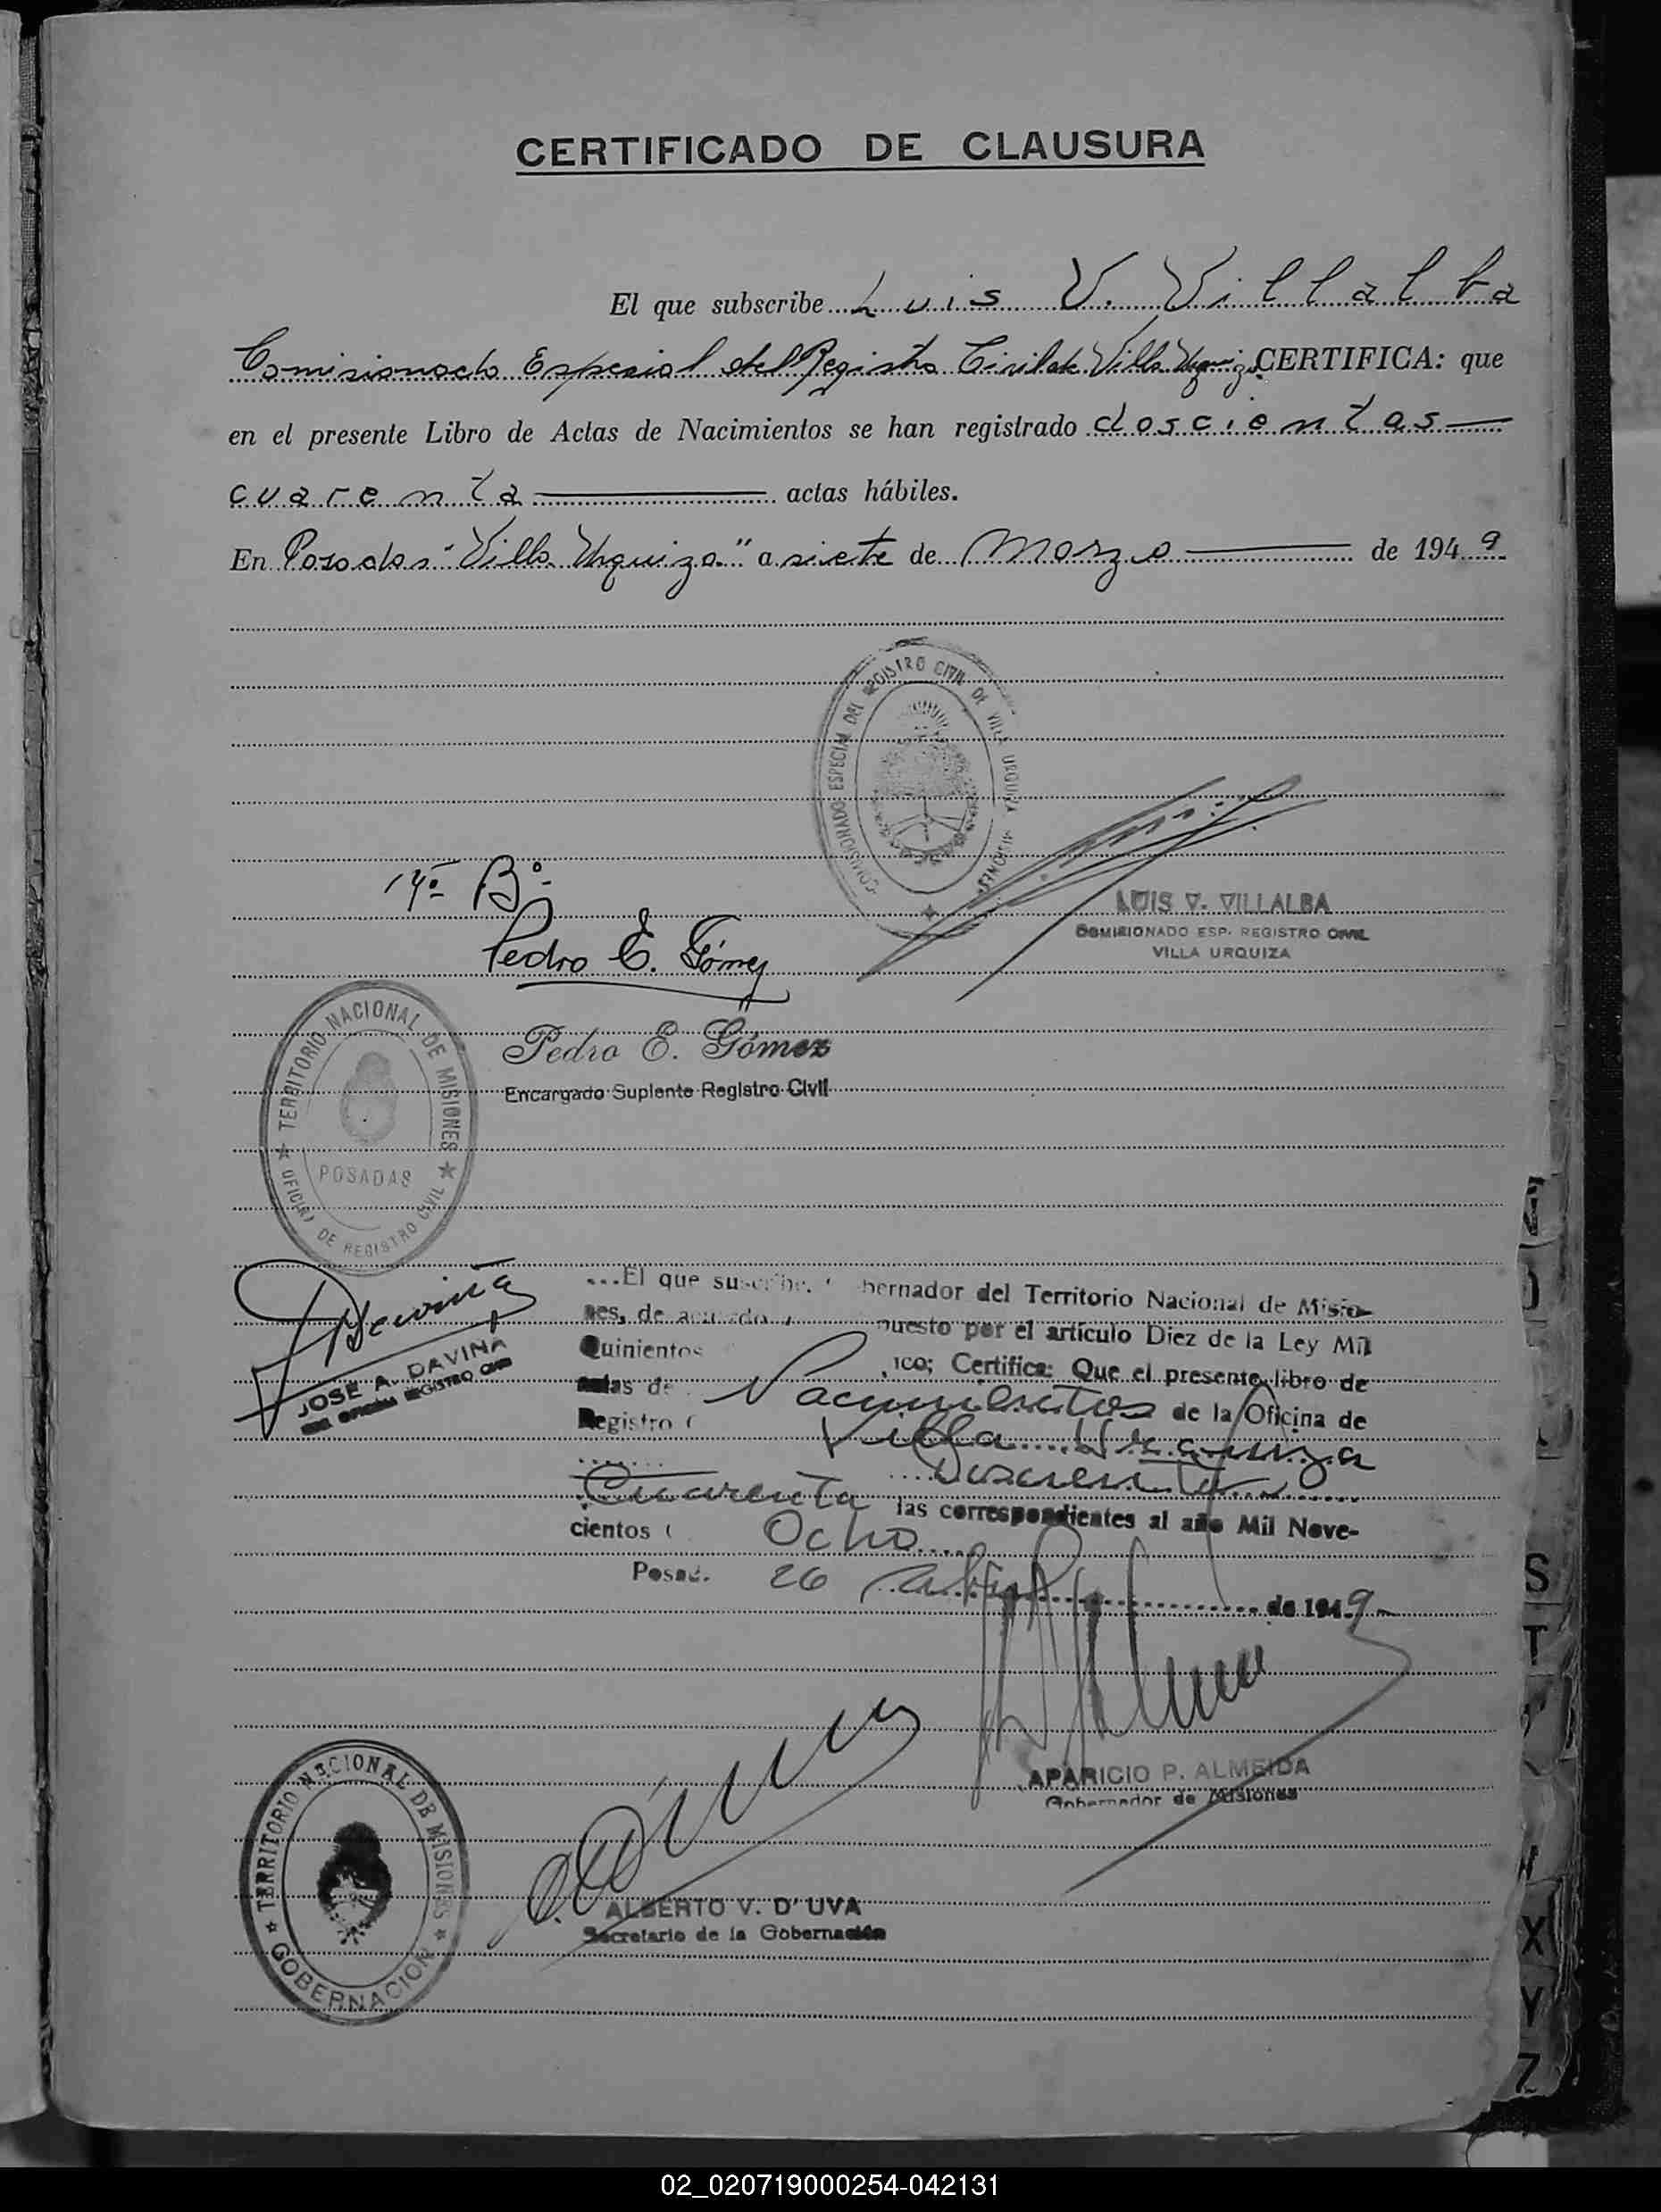 CERTIFICADO DE CLAUSURA
El que subscribe Luis V. Villalba
Comisionado Especial del Registro Civil de Villa Urquiza CERTIFICA: que
en el presente Libro de Actas de Nacimientos se han registrado doscientas
cuarenta actas hábiles.
En Posadas "Villa Urquiza" a siete de Marzo de 1949
COMISIONADO ESPECIAL DEL REGISTRO CIVIL DE VILLA URQUIZA MISIONES
LUIS V. VILLALBA
COMISIONADO ESP. REGISTRO CIVIL
VILLA URQUIZA
Vº Bº
Pedro E. Gómez
Pedro E. Gómez
Encargado Suplente Registro Civil
TERRITORIO NACIONAL DE MISIONES
POSADAS
OFICINA DE REGISTRO CIVIL
JDaviña
JOSE A. DAVIÑA
OFICINA REGISTRO CIVIL
...El que suscribe, bernador del Territorio Nacional de Misio-
nes, de acuerdo puesto por el artículo Diez de la Ley Mil
Quinientos ico; Certifica: Que el presente libro de
actas de Nacimientos de la Oficina de
Registro Villa Urquiza
Doscientas
Cuarenta las correspondientes al año Mil Nove-
cientos Ocho
Posad. 26 Abril de 1949
APARICIO P. ALMEIDA
Gobernador de Misiones
TERRITORIO NACIONAL DE MISIONES
GOBERNACION
ALBERTO V. D'UVA
Secretario de la Gobernación
S
T
X
Y
Z
02_020719000254-042131